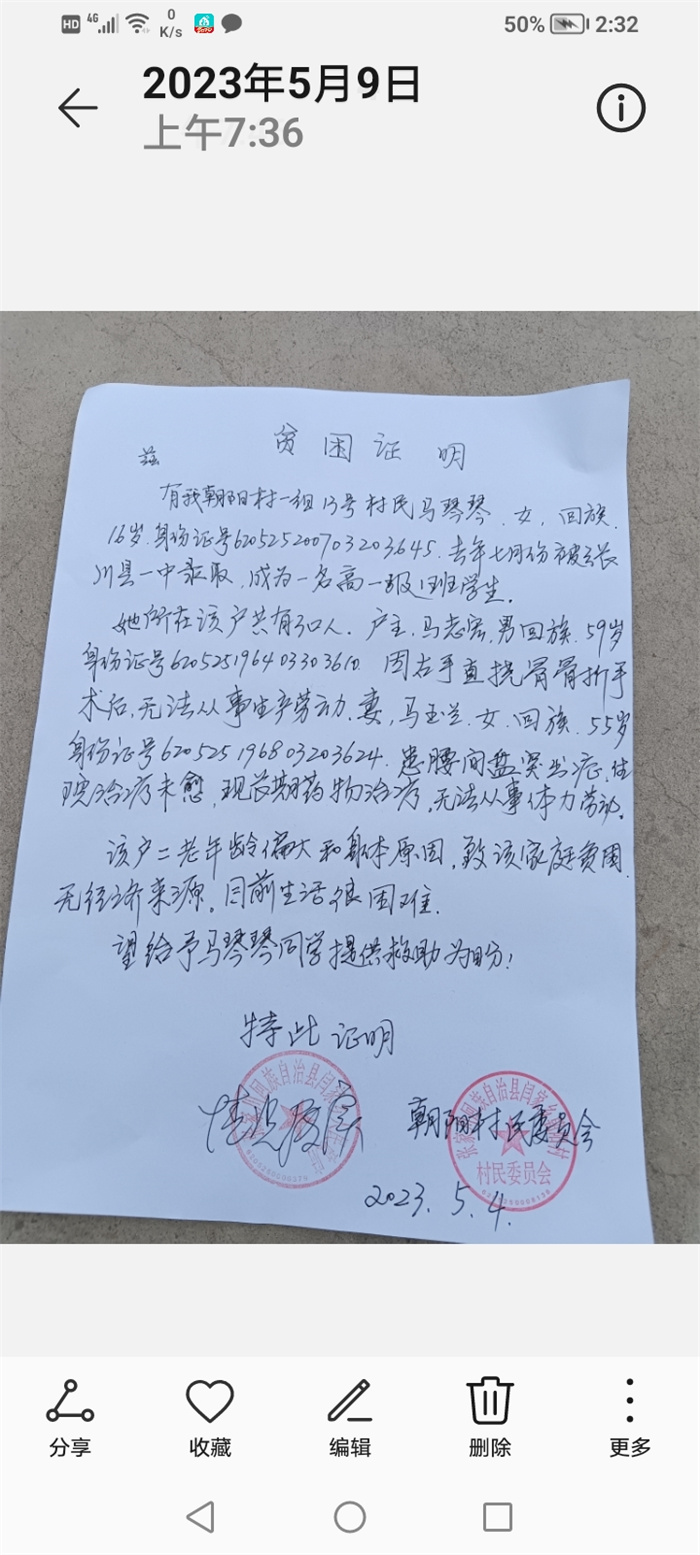 HD 4G 0 K/s 50% 2:32
2023年5月9日
上午7:36
贫困证明
兹
有我朝阳村一组13号村民马琴琴.女,回族.
16岁.身份证号620525200703203645.去年七月份被张
川县一中录取,成为一名高一级12班学生.
她所在该户共有3口人.户主.马志宏,男回族.59岁
身份证号620525196403303610.因右手直挠骨骨折手
术后,无法从事生产劳动.妻,马玉兰.女.回族.55岁
身份证号620525196803203624.患腰间盘突出症,住
院治疗未愈,现长期药物治疗,无法从事体力劳动.
该户二老年龄偏大和身体原因,致该家庭贫困.
无经济来源。目前生活很困难.
望给予马琴琴同学提供救助为盼!
特此证明
情况属实 朝阳村民委员会
村民委员会
2023.5.4.
分享 收藏 编辑 删除 更多